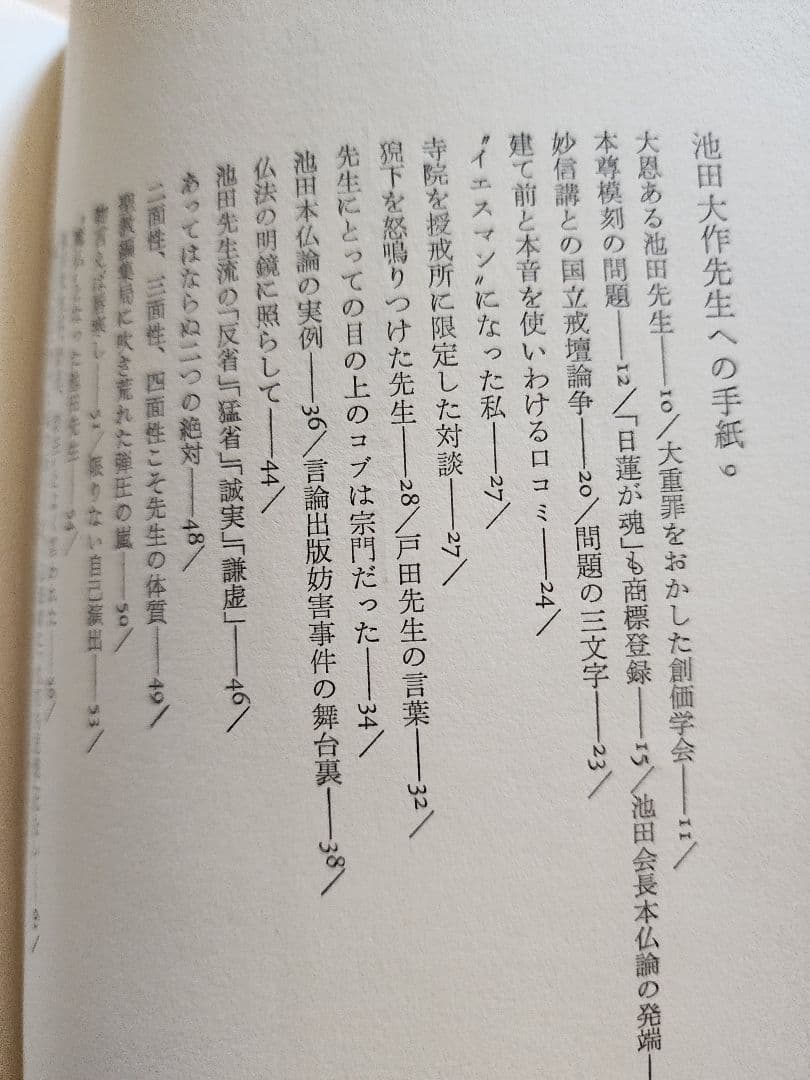 池田大作先生への手紙 9
大恩ある池田先生——10／大重罪をおかした創価学会——11／
本尊模刻の問題——12／「日蓮が魂」も商標登録——15／池田会長本仏論の発端—
妙信講との国立戒壇論争——20／問題の三文字——23／
建て前と本音を使いわける口コミ——24／
〝イエスマン〟になった私——27／
寺院を授戒所に限定した対談——27／
猊下を怒鳴りつけた先生——28／戸田先生の言葉——32／
先生にとっての目の上のコブは宗門だった——34／
池田本仏論の実例——36／言論出版妨害事件の舞台裏——38／
仏法の明鏡に照らして——44／
池田先生流の「反省」「猛省」「誠実」「謙虚」——46／
あってはならぬ二つの絶対——48／
二面性、三面性、四面性こそ先生の体質——49／
聖教編集局に吹き荒れた弾圧の嵐——50／
——51／限りない自己演出——53／